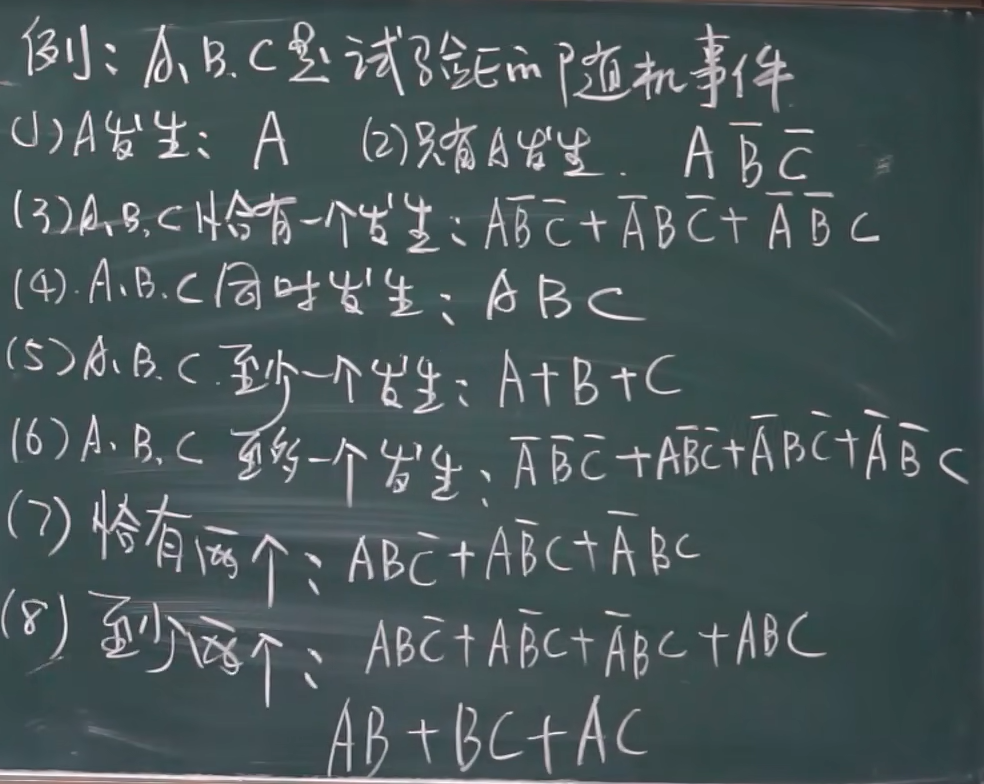 例: A、B.C是试验E的随机事件
(1)A发生: A (2)只有A发生. A B̅ C̅
(3)A、B、C恰有一个发生: AB̅C̅+A̅BC̅+A̅B̅C
(4).A、B.C同时发生: ABC
(5)A、B.C.至少一个发生: A+B+C
(6)A、B、C 至多一个发生: A̅B̅C̅+AB̅C̅+A̅BC̅+A̅B̅C
(7) 恰有两个: ABC̅+AB̅C+A̅BC
(8) 至少两个: ABC̅+AB̅C+A̅BC+ABC
AB+BC+AC